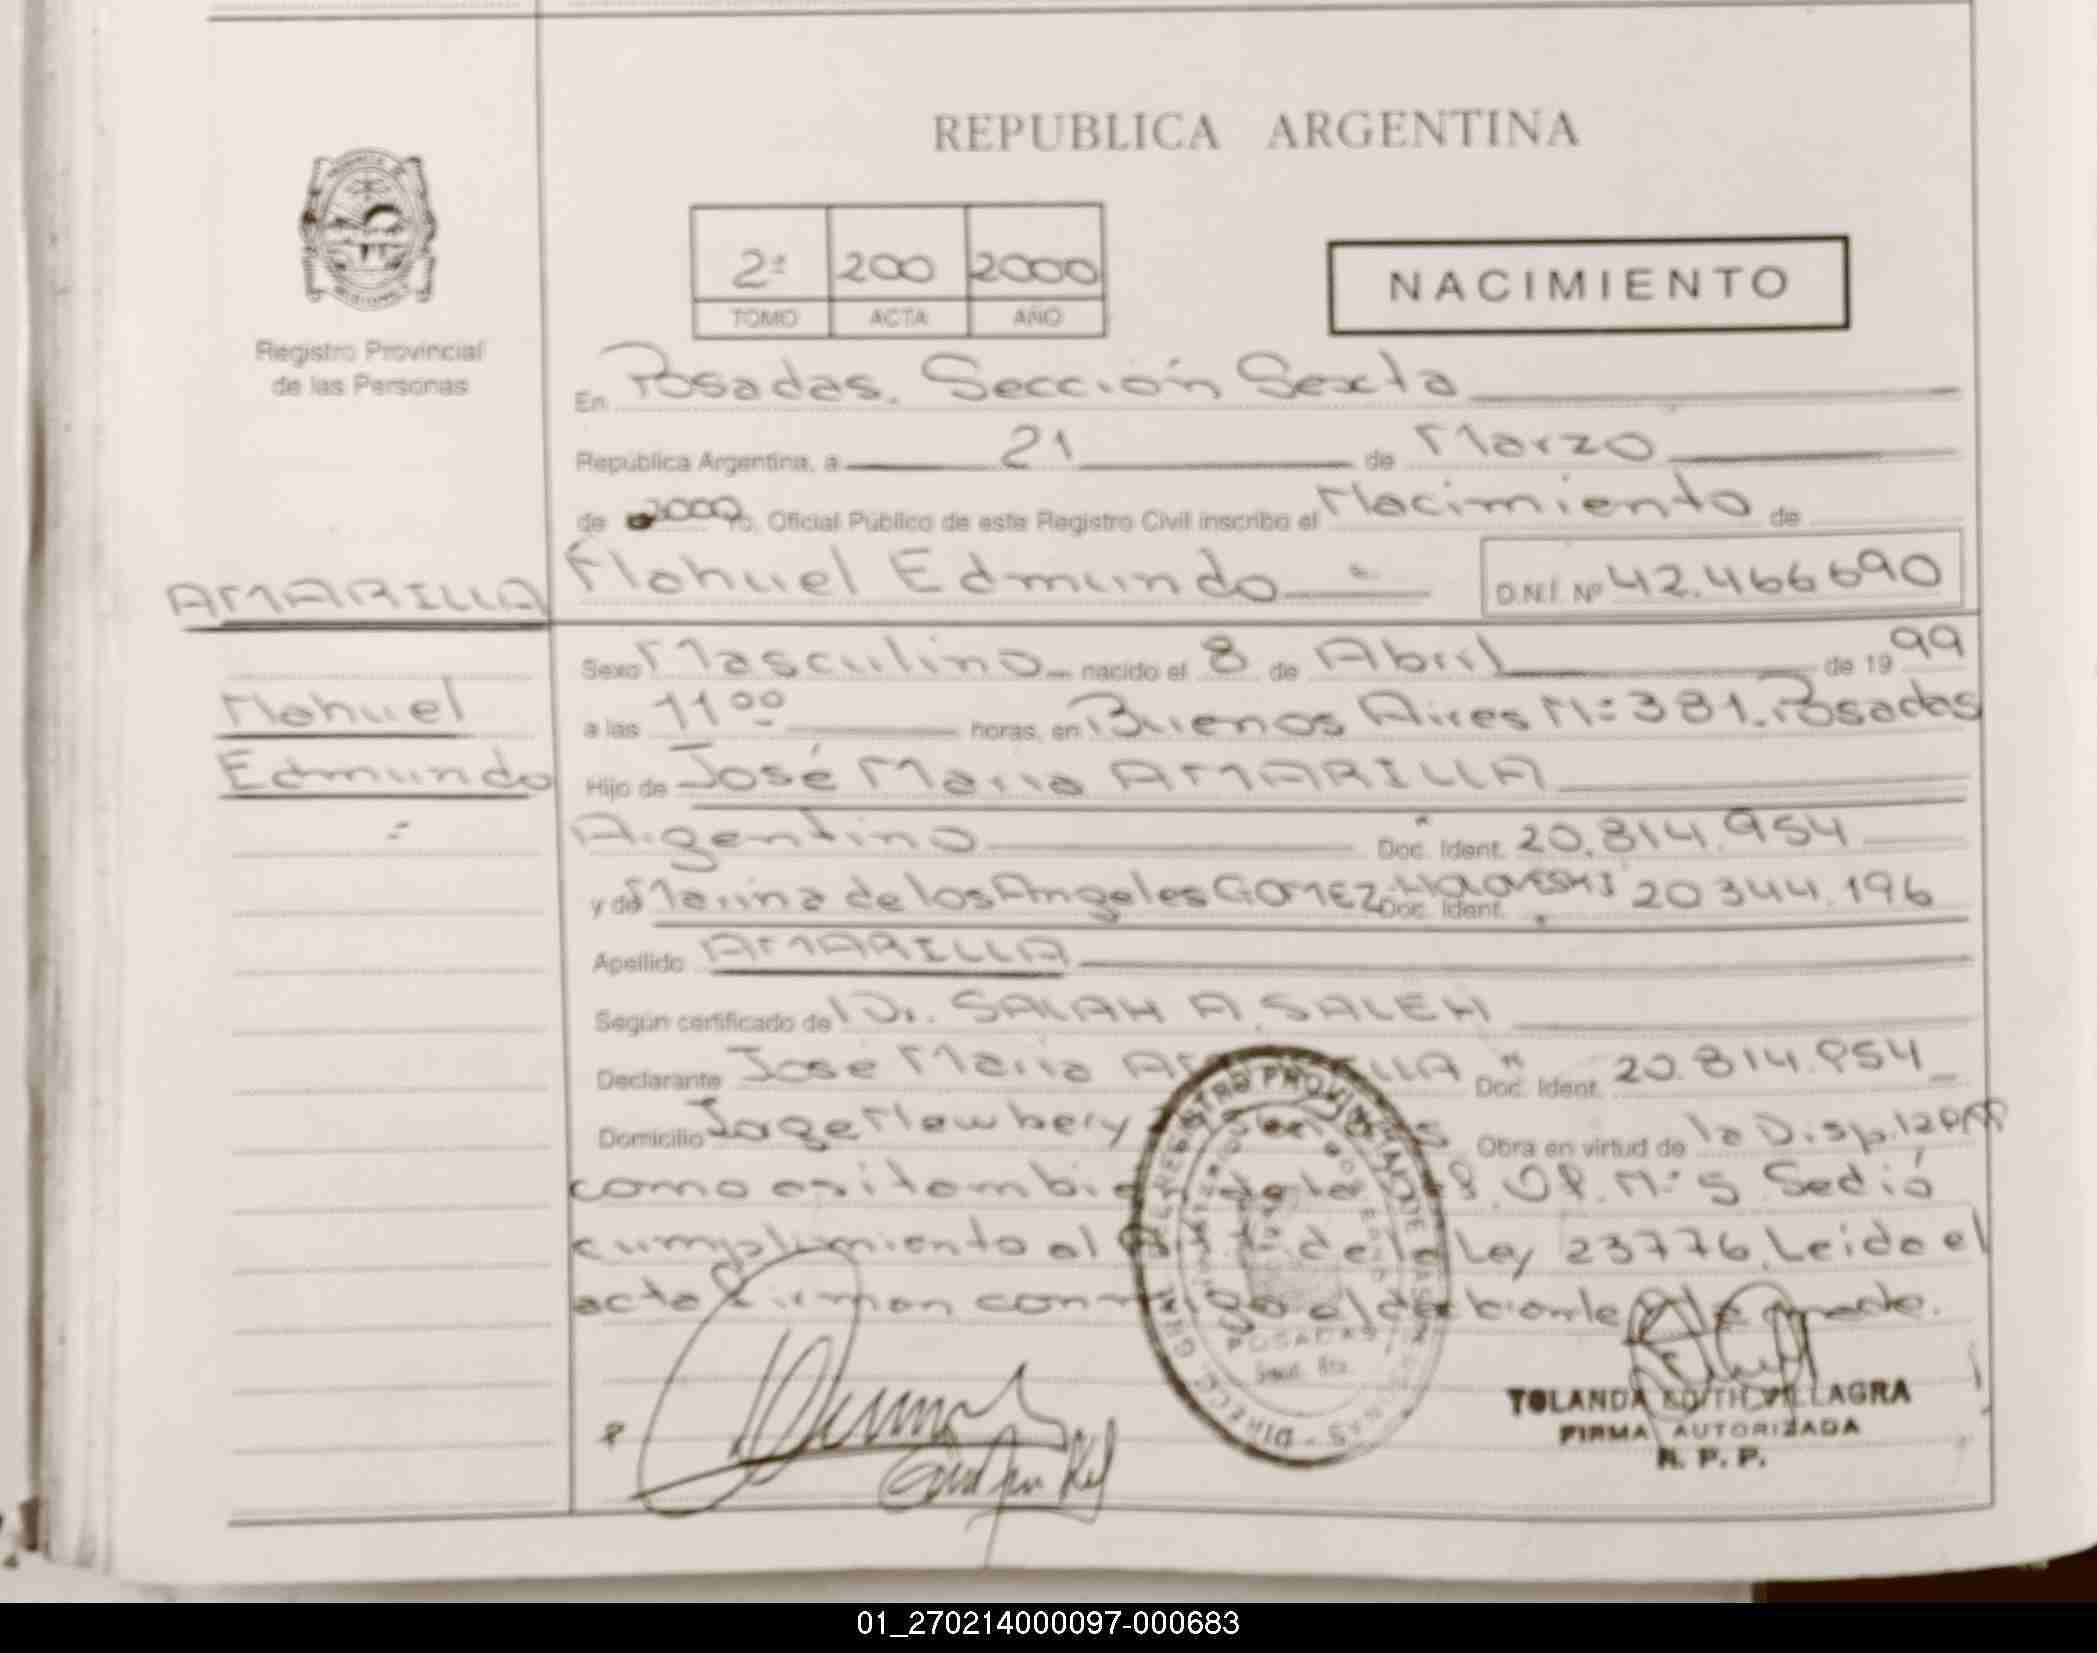 REPUBLICA ARGENTINA
2ª 200 2000
TOMO ACTA AÑO
NACIMIENTO
Registro Provincial
de las Personas
En Posadas. Sección Sexta
República Argentina, a 21 de Marzo
de 2000 Yo, Oficial Público de este Registro Civil inscribo el Nacimiento de
AMARILLA
Nahuel Edmundo
D.N.I. Nº 42.466690
Sexo Masculino nacido el 8 de Abril de 1999
Nahuel
Edmundo
a las 11 00 horas, en Buenos Aires Nº 381. Posadas
Hijo de José Maria AMARILLA
Argentino Doc. Ident. 20.814.954
y de Marina de los Angeles GOMEZ Doc. Ident. 20344.196
Apellido AMARILLA
Según certificado del Dr. SALAH A. SALEH
Declarante José Maria AMARILLA Doc. Ident. 20.814.954
Domicilio Jorge Newbery Obra en virtud de la Disp.
como asi tambien de la Nº 5 Se dió
cumplimiento al de la Ley 23776. Leida el
acta firman conmigo el declarante
DIRECC. GRAL. DEL REGISTRO PROVINCIAL DE LAS PERSONAS
POSADAS
YOLANDA EDITH VILLAGRA
FIRMA AUTORIZADA
R. P. P.
01_270214000097-000683